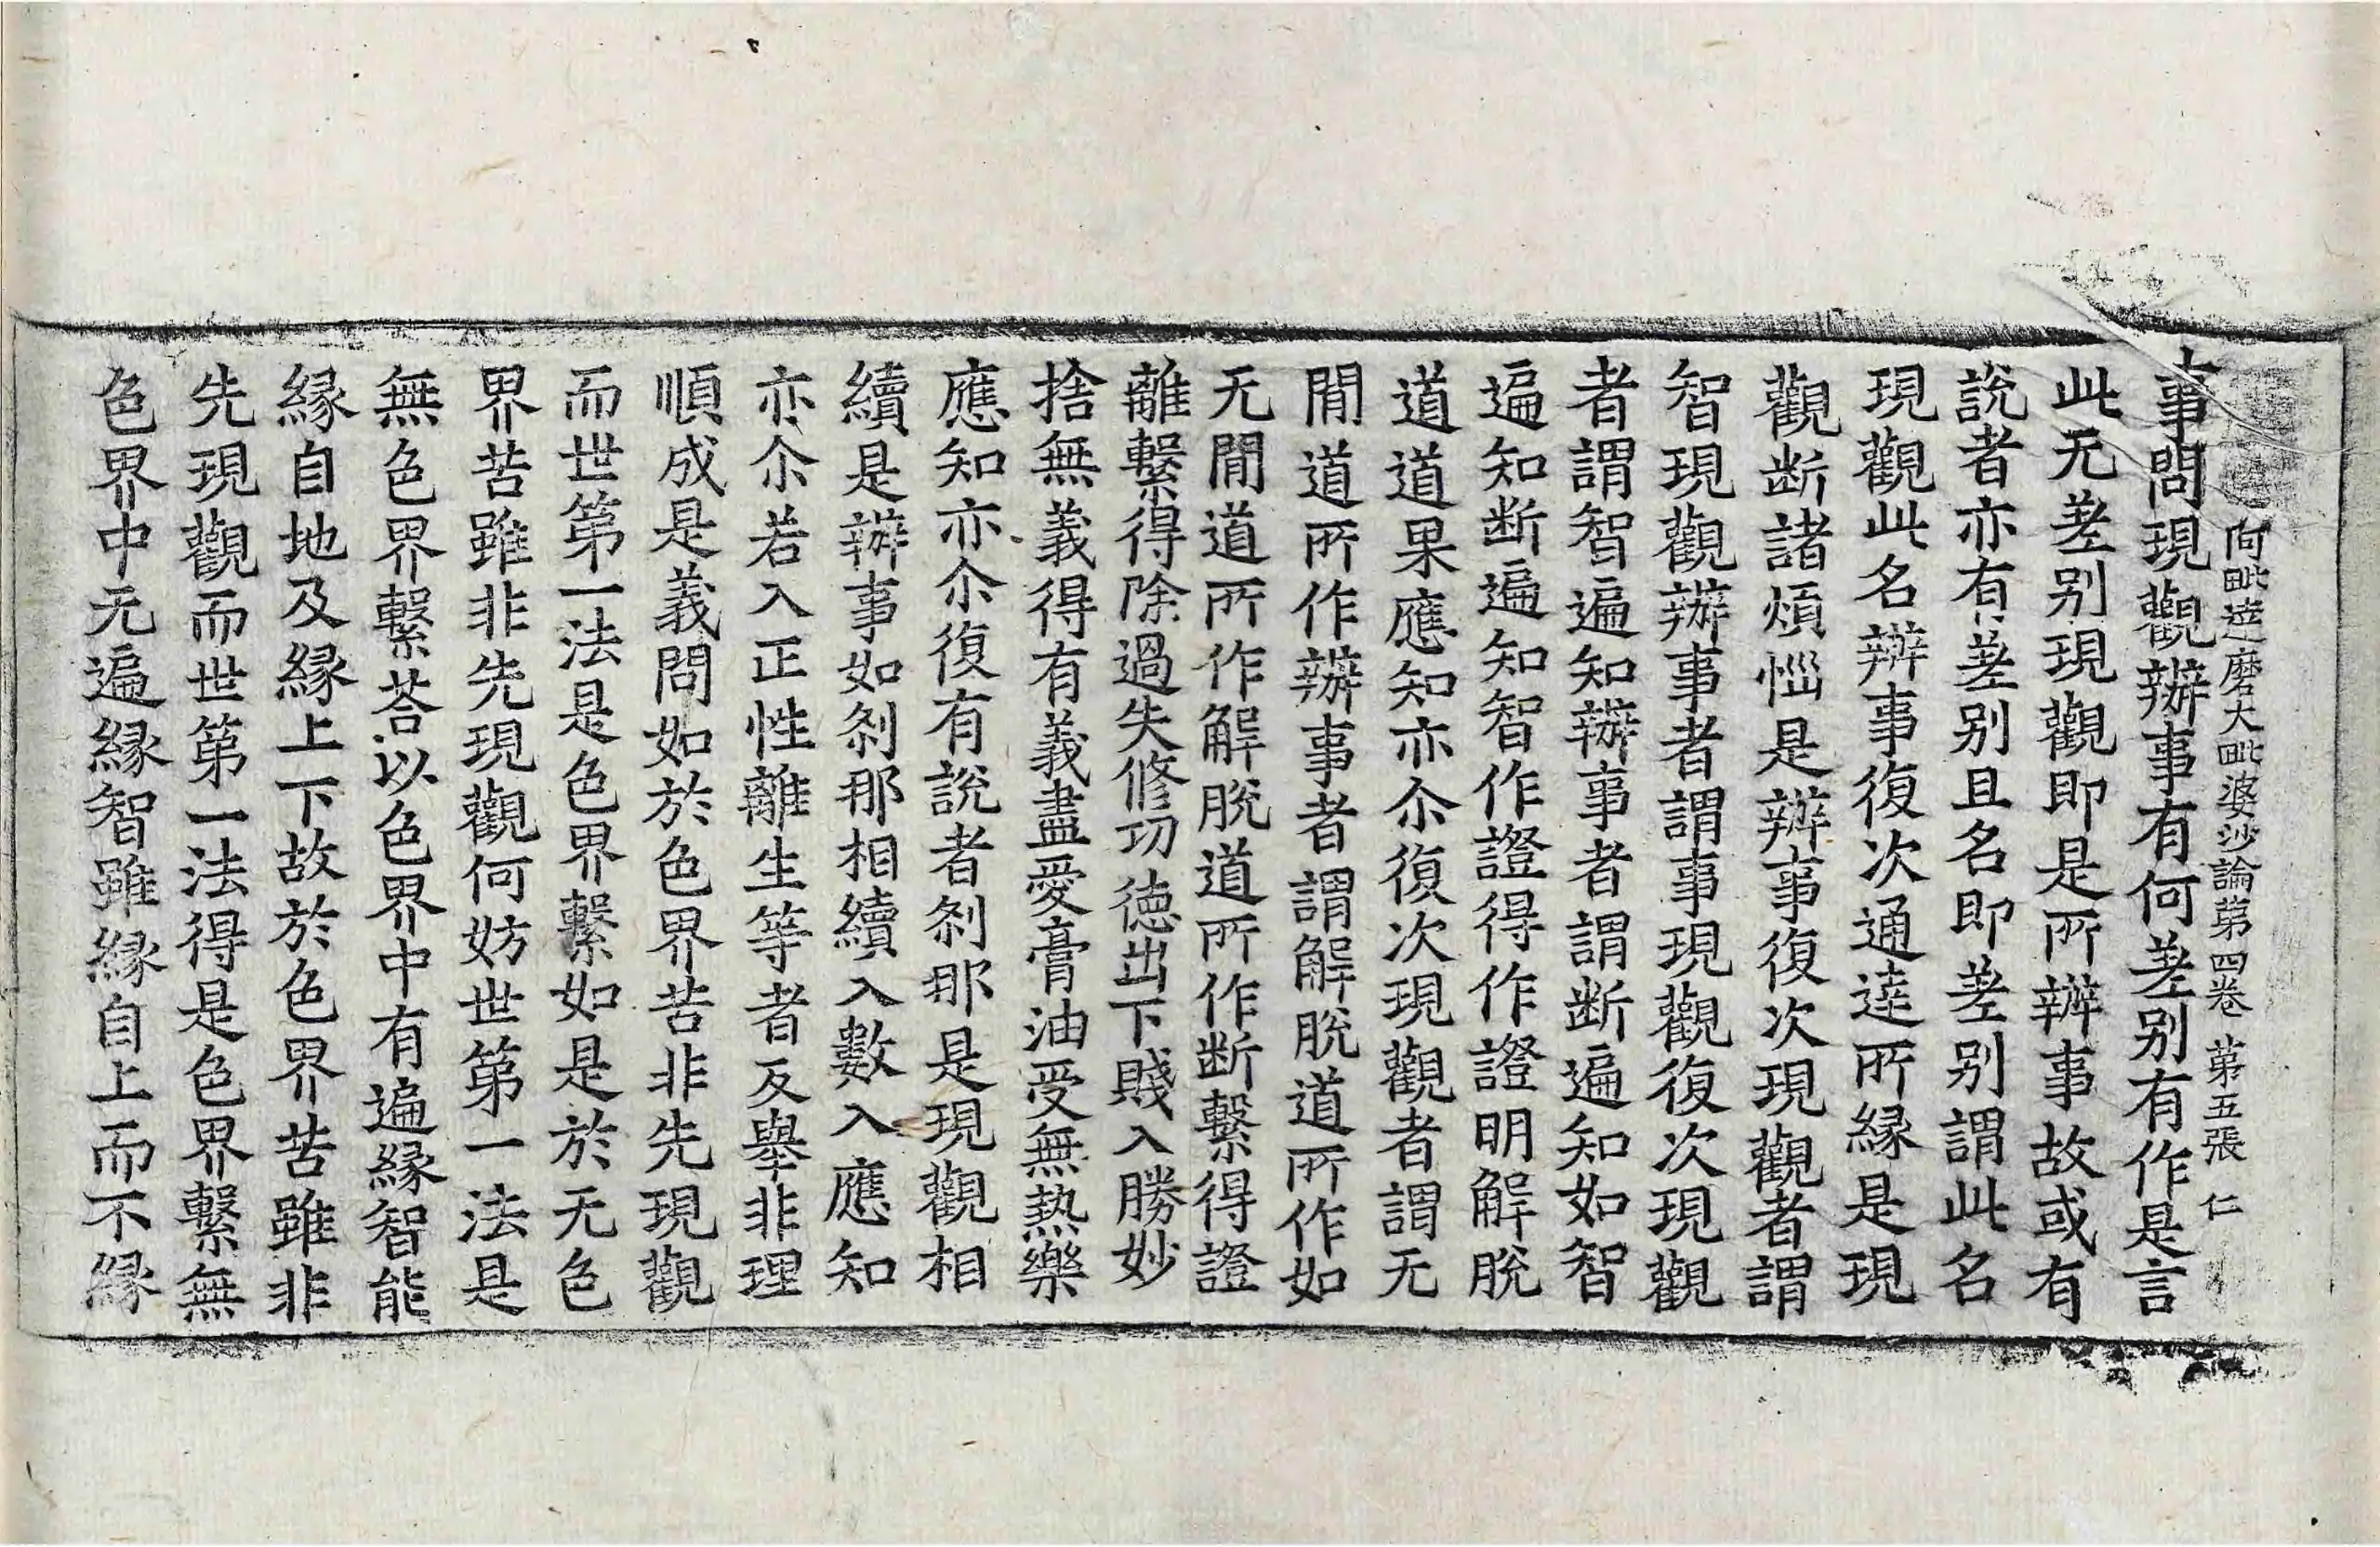 毗達磨大毗婆沙論第四卷 第五張 仁
事問現觀辦事有何差别有作是言
此无差别現觀即是所辦事故或有
說者亦有差别且名即差别謂此名
現觀此名辦事復次通達所縁是現
觀断諸煩惱是辦事復次現觀者謂
智現觀辦事者謂事現觀復次現觀
者謂智遍知辦事者謂断遍知如智
遍知断遍知智作證得作證明解脫
道道果應知亦尒復次現觀者謂无
閒道所作辦事者謂解脫道所作如
无閒道所作解脫道所作断繫得證
離繫得除過失修功德出下賤入勝妙
捨無義得有義盡愛膏油受無熱樂
應知亦尒復有說者刹那是現觀相
續是辦事如刹那相續入數入應知
亦尒若入正性離生等者反舉非理
順成是義問如於色界苦非先現觀
而世第一法是色界繫如是於无色
界苦雖非先現觀何妨世第一法是
無色界繫荅以色界中有遍縁智能
縁自地及縁上下故於色界苦雖非
先現觀而世第一法得是色界繫無
色界中无遍縁智雖縁自上而不縁